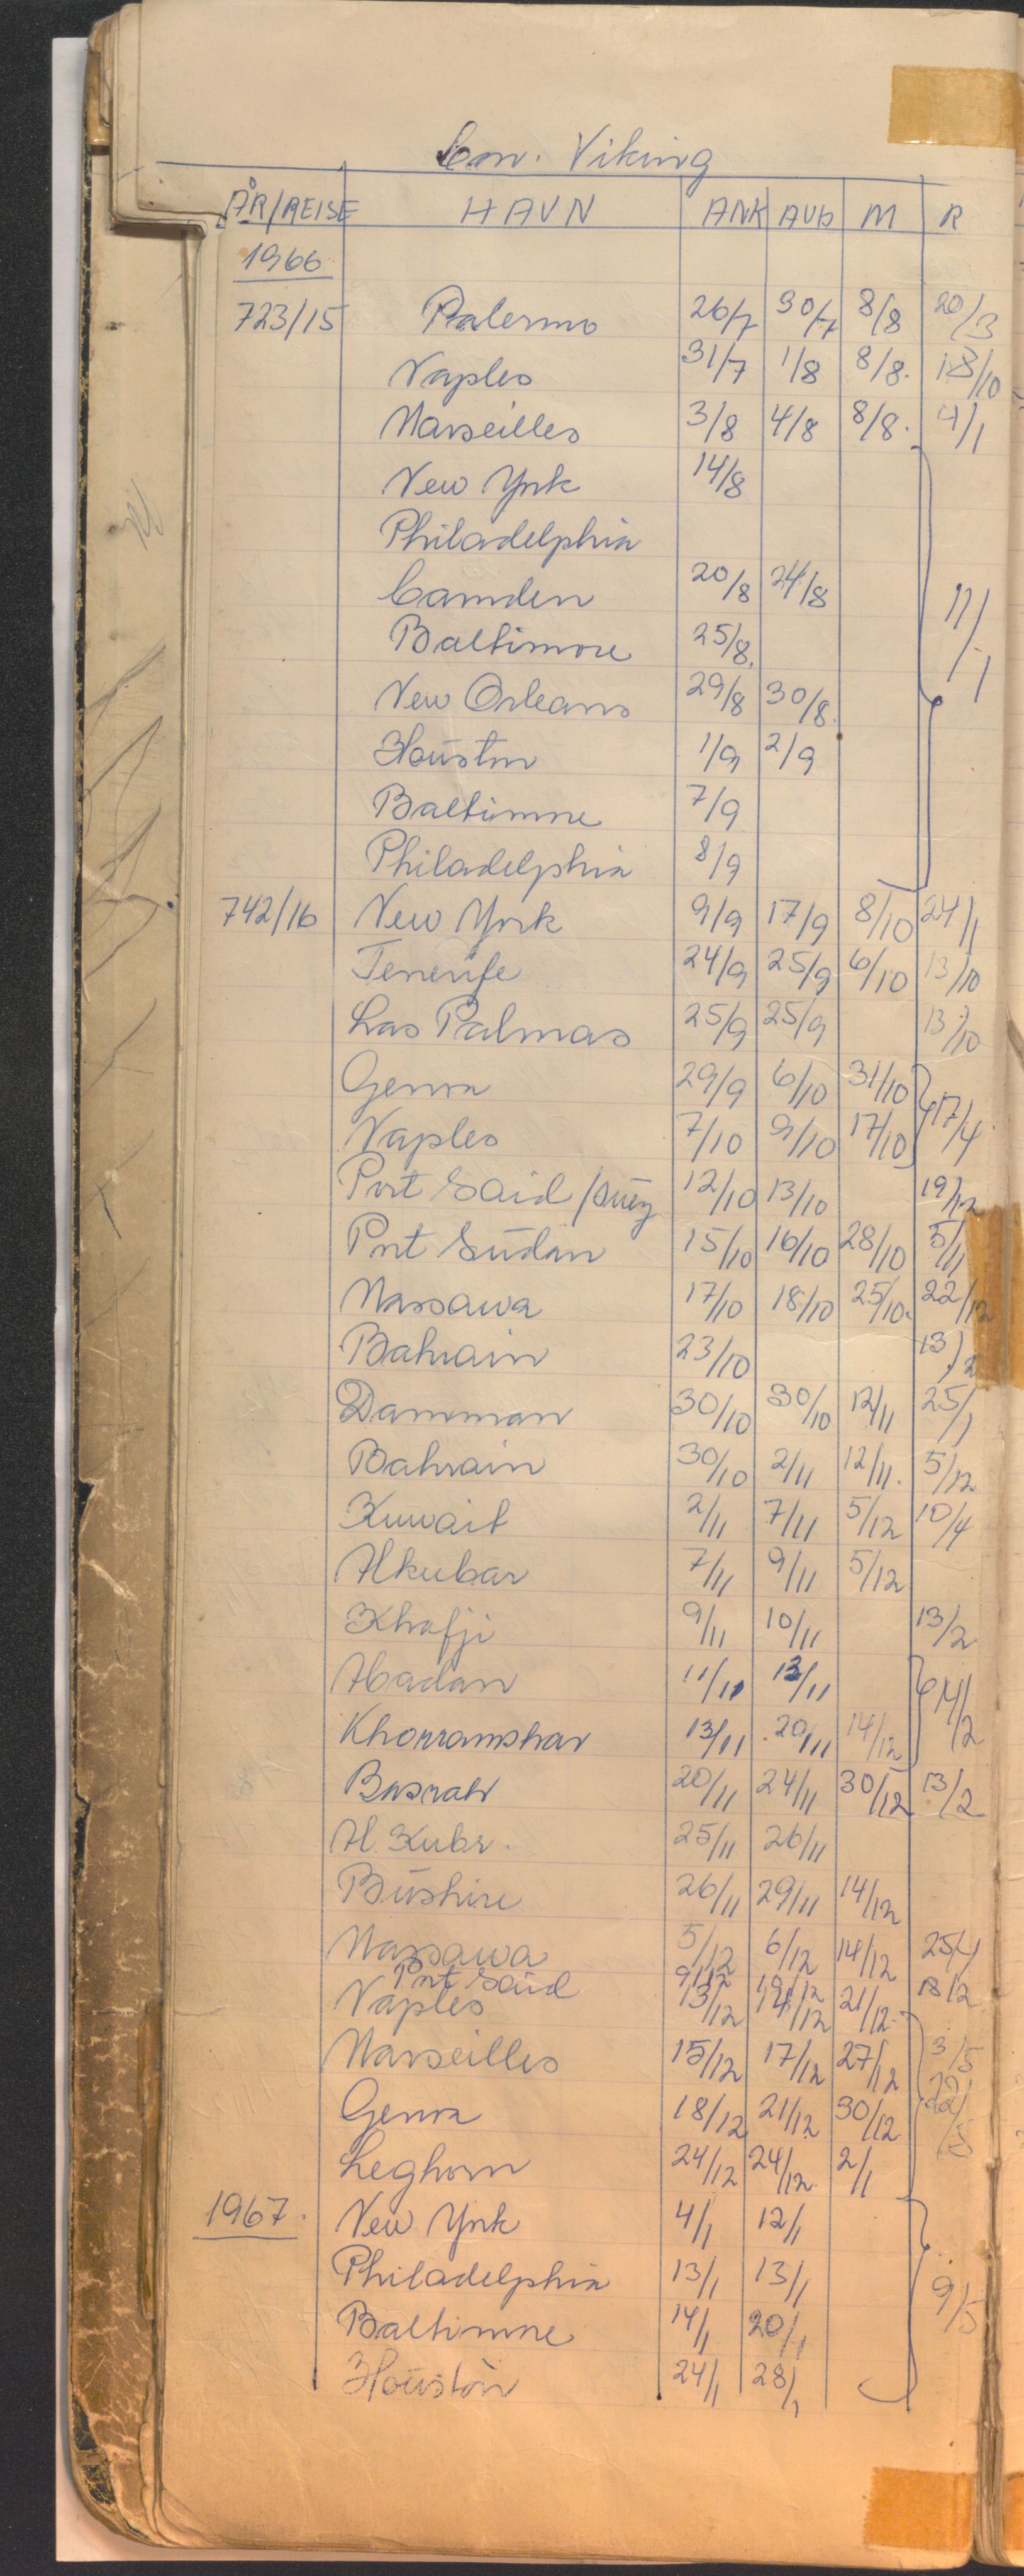 Con. Viking
ÅR/REISE HAVN ANK AVG M R
1966
723/15 Palermo 26/7 30/7 8/8 20/3
Naples 31/7 1/8 8/8. 18/10
Marseilles 3/8 4/8 8/8. 4/1
New York 14/8
Philadelphia
Camden 20/8 24/8 11/1
Baltimore 25/8.
New Orleans 29/8 30/8.
Houston 1/9 2/9
Baltimore 7/9
Philadelphia 8/9
742/16 New York 9/9 17/9 8/10 24/1
Tenerife 24/9 25/9 6/10 13/10
Las Palmas 25/9 25/9 13/10
Genoa 29/9 6/10 31/10 17/4
Naples 7/10 9/10 17/10
Port Said/Suez 12/10 13/10 19/12
Port Sudan 15/10 16/10 28/10 5/11
Massawa 17/10 18/10 25/10. 22/12
Bahrain 23/10 13/2
Damman 30/10 30/10 12/11 25/1
Bahrain 30/10 2/11 12/11. 5/12
Kuwait 2/11 7/11 5/12 10/4
Alkubar 7/11 9/11 5/12
Khafji 9/11 10/11 13/2
Abadan 11/11 13/11 14/2
Khorramshar 13/11 20/11 14/12
Basrah 20/11 24/11 30/12 13/2
Al Kubr. 25/11 26/11
Bushire 26/11 29/11 14/12
Massawa 5/12 6/12 14/12 25/4
Port Said 9/12 19/12 13/2
Naples 13/12 14/12 21/12.
Marseilles 15/12 17/12 27/12 3/5
Genoa 18/12 21/12 30/12
Leghorn 24/12 24/12 2/1
1967. New York 4/1 12/1
Philadelphia 13/1 13/1 9/5
Baltimore 14/1 20/1
Houston 24/1 28/1